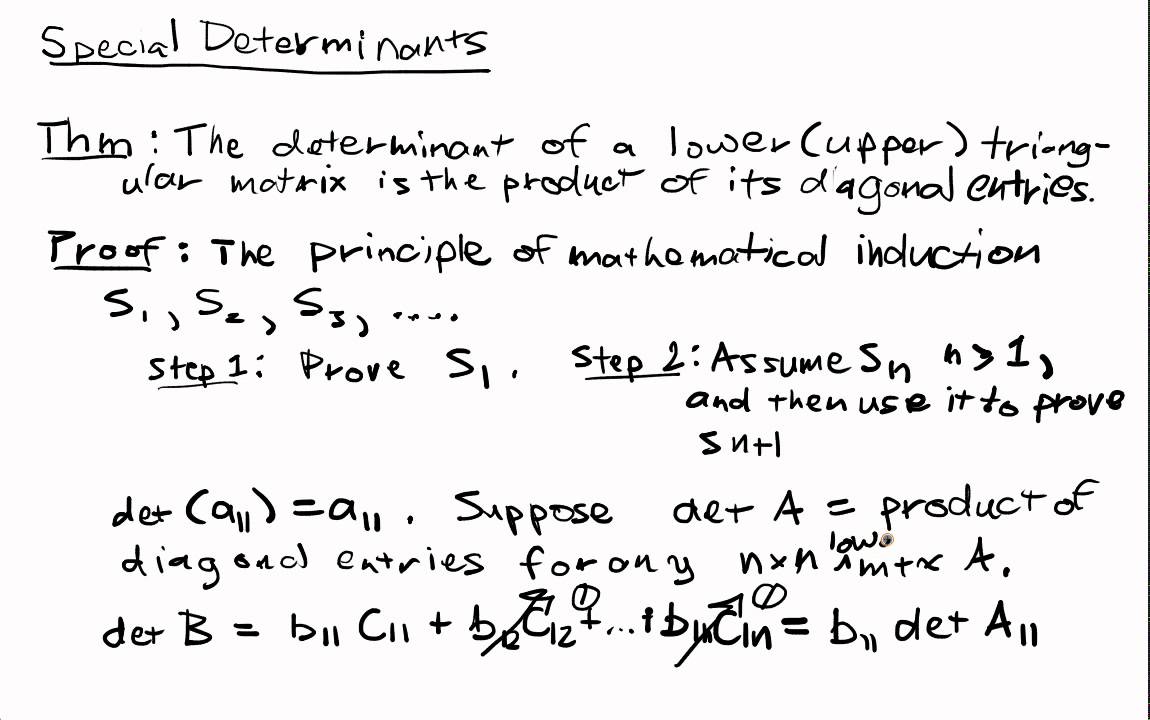 Special Determinants
Thm: The determinant of a lower (upper) triang-
ular matrix is the product of its diagonal entries.
Proof: The principle of mathematical induction
S₁, S₂, S₃, ....
Step 1: Prove S₁. Step 2: Assume Sₙ n>1,
and then use it to prove
Sn+1
det (a₁₁) = a₁₁. Suppose det A = product of
diagonal entries for any n×n low mtx A.
det B = b₁₁ C₁₁ + b₁₂ C₁₂ + ... + b₁ₙ C₁ₙ = b₁₁ det A₁₁